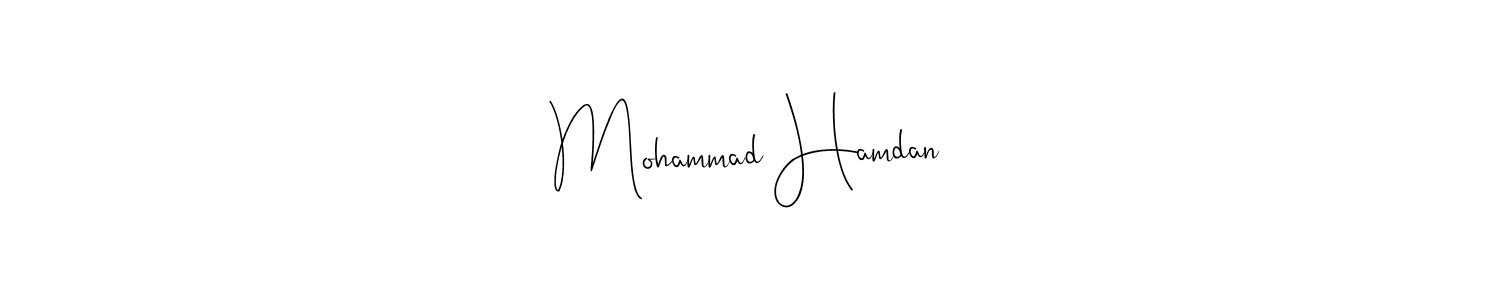 Mohammad Hamdan